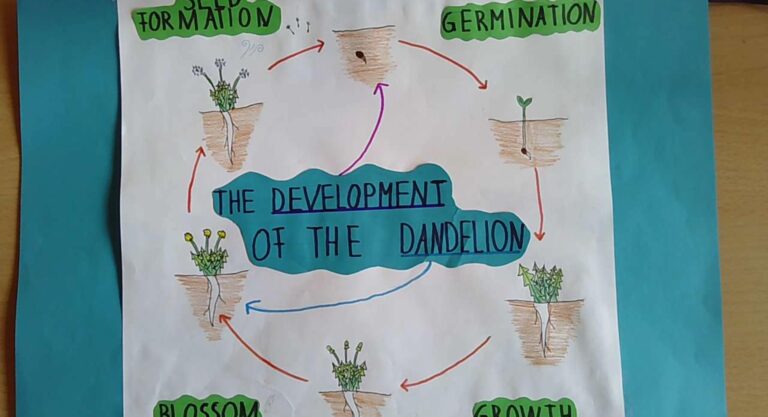 SEED
FORMATION
GERMINATION
THE DEVELOPMENT
OF THE DANDELION
BLOSSOM
GROWTH